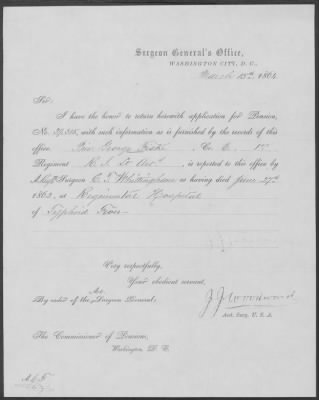 Surgeon General's Office,
WASHINGTON CITY, D. C.,
March 15th, 1864.
Sir:
I have the honor to return herewith application for Pension,
No. with such information as is furnished by the records of this
office. George Co. C. 1st
Regiment R. I. Lt Art, is reported to this office by
Surgeon C. T. Whittingham as having died June 27th
1863, at Regimental Hospital
of Typhoid Fever
Very respectfully,
Your obedient servant,
By order of the Act. Surgeon General:
J. J. Woodward
Ast. Surg. U. S. A.
The Commissioner of Pensions,
Washington, D. C.